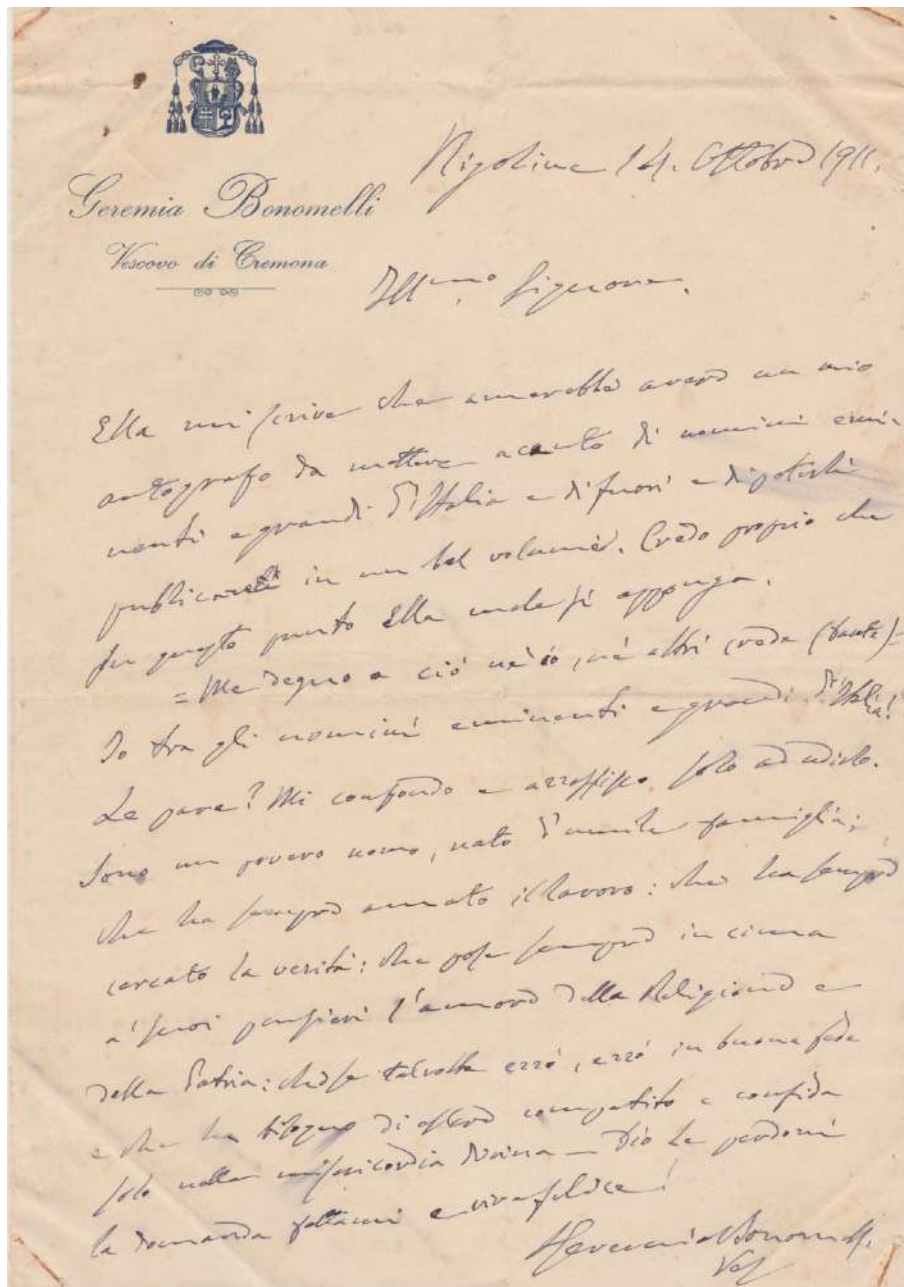 Geremia Bonomelli
Vescovo di Cremona
Nigoline 14. Ottobre 1911.
Ill.mo Signore.
Ella mi scrive che amerebbe avere un mio
autografo da mettere acanto di uomini emi-
nenti e grandi d'Italia e di fuori e di poterli
publicare in un bel volume. Credo proprio che
su questo punto Ella male si appoga.
= Me degno a ciò nè io, nè altri crede (Dante) =
Io tra gli uomini eminenti e grandi d'Italia!
Le pare? Mi confondo e arrossisco solo ad udirlo.
Sono un povero uomo, nato d'umile famiglia;
che ha sempre amato il lavoro: che ha sempre
cercato la verità: che pose sempre in cima
a' suoi pensieri l'amore della Religione e
della Patria: che se talvolta errò, errò in buona fede
e che ha bisogno di essere compatito e confida
solo nella misericordia Divina — Dio Le perdoni
la domanda fattami e viva felice!
Geremia Bonomelli
Ves